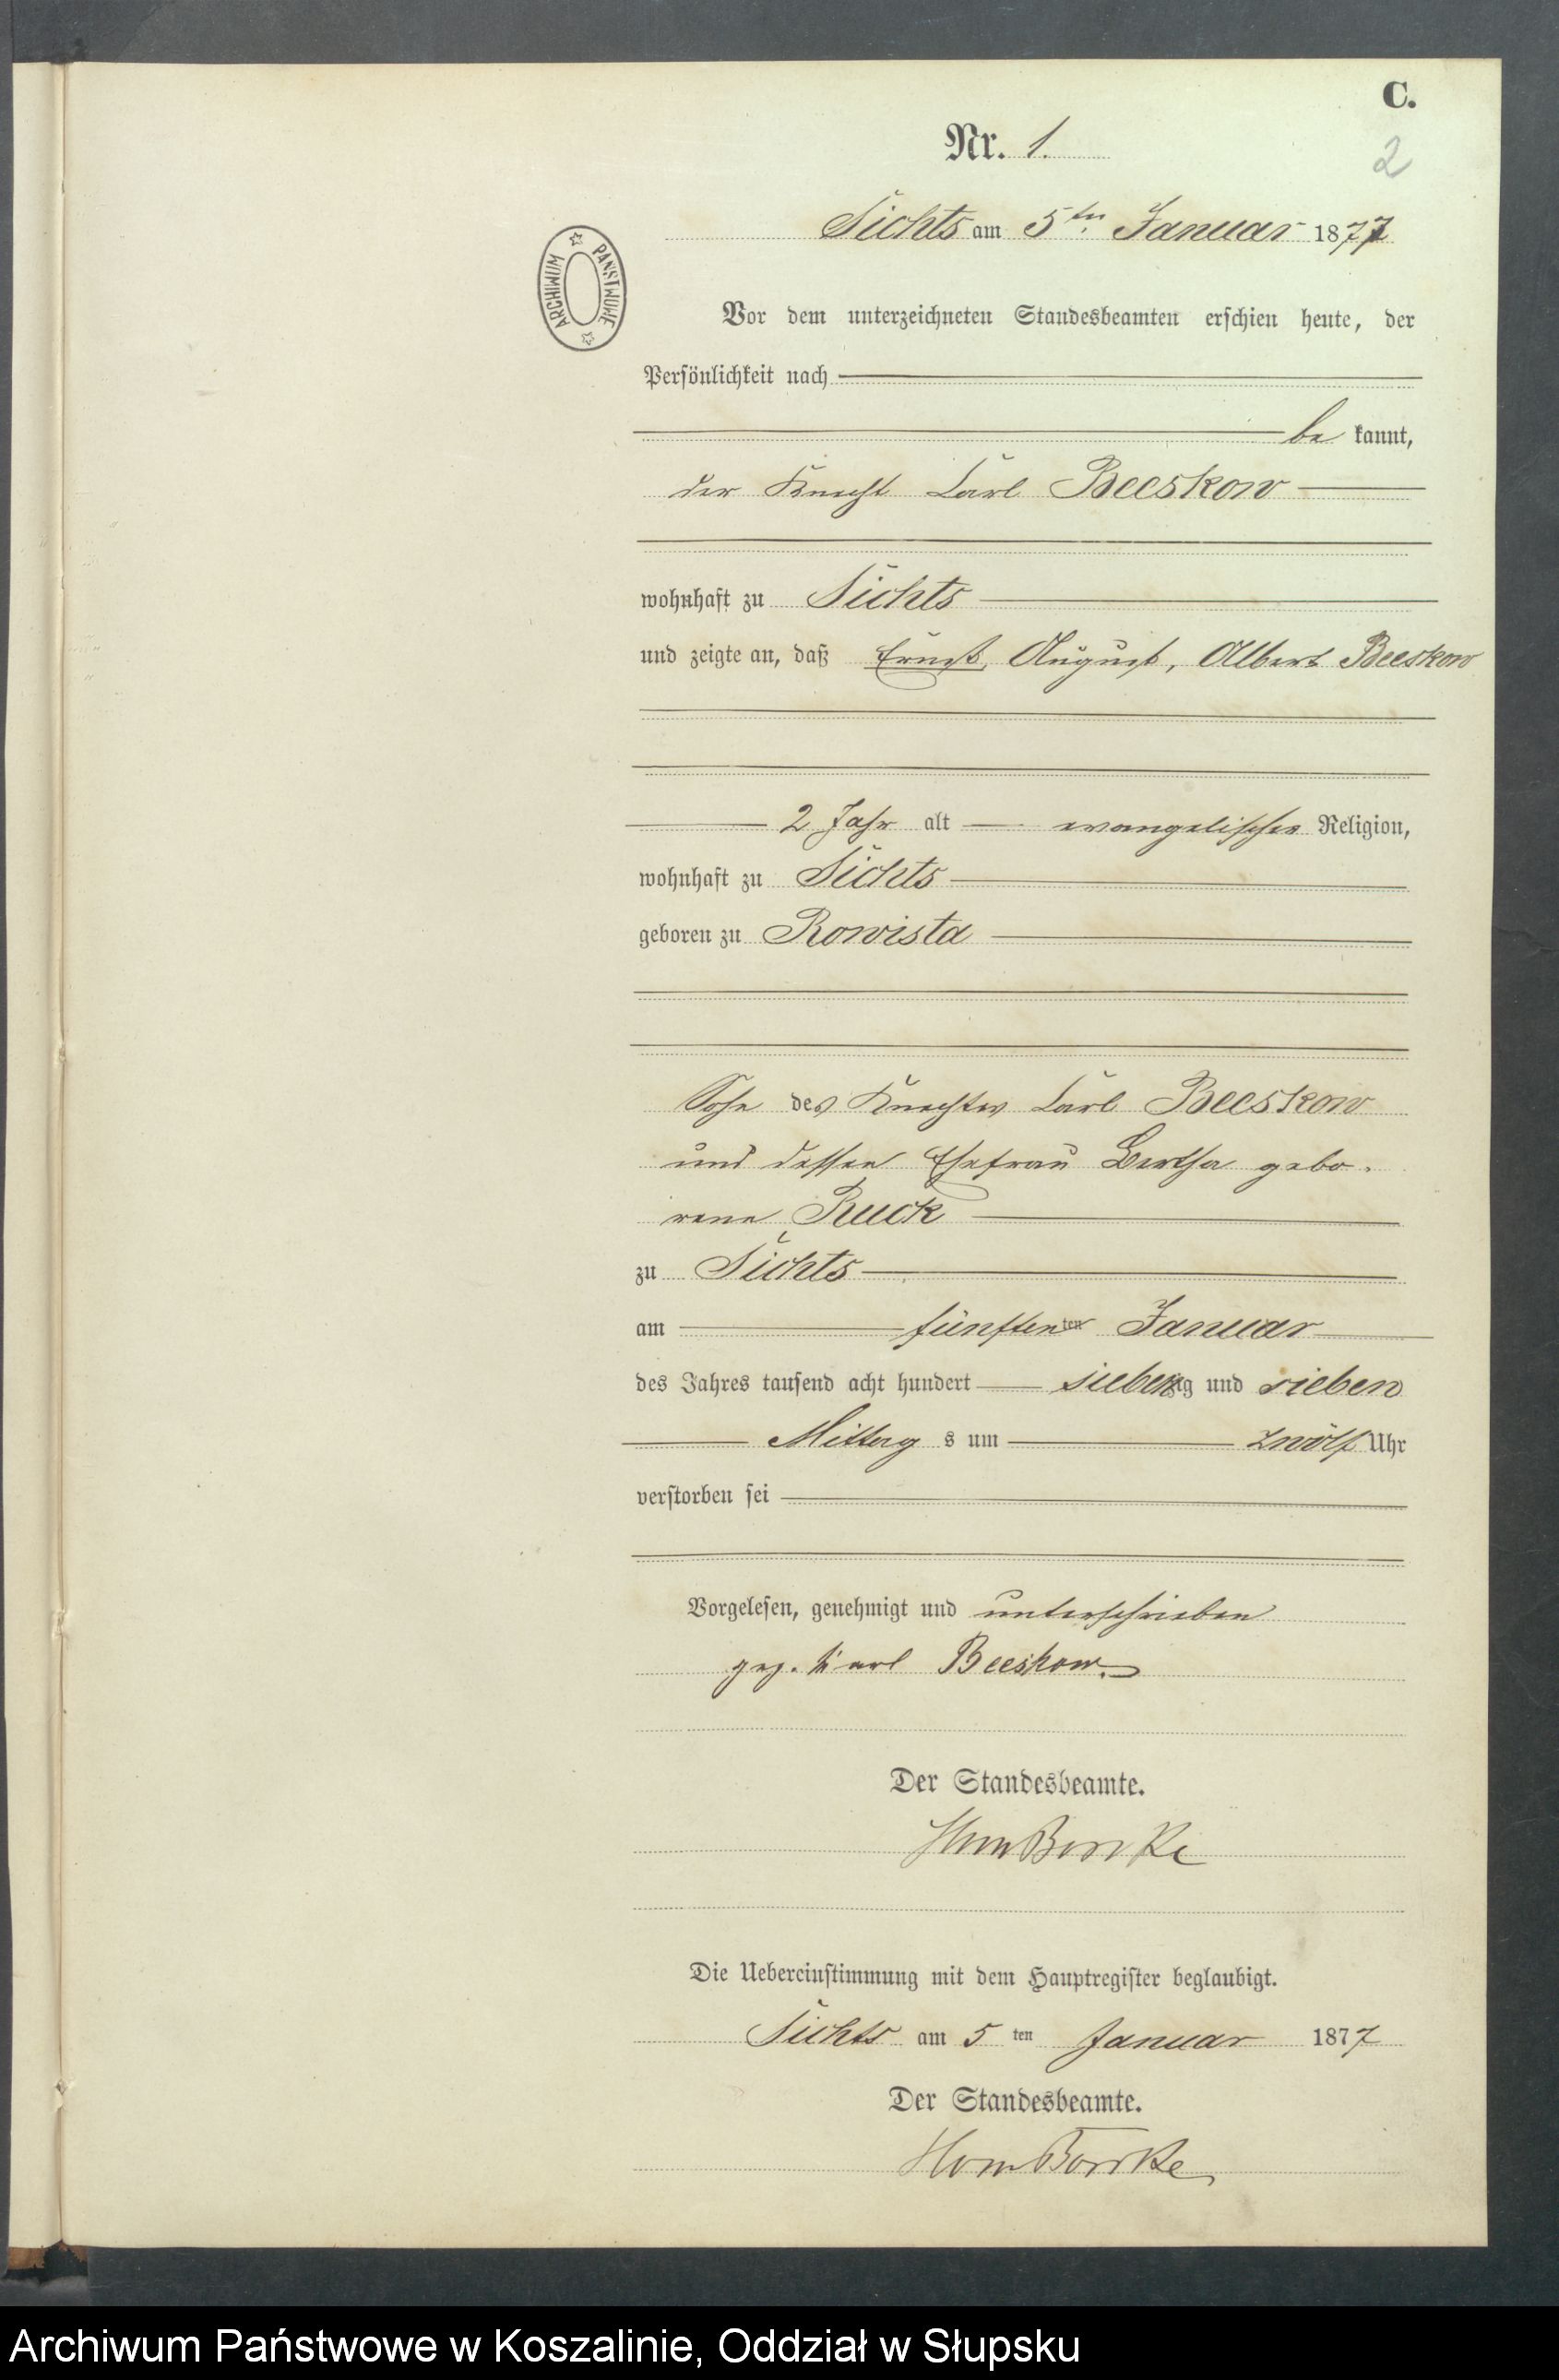 C.
Nr. 1.
2
Sichts am 5ten Januar 1877
ARCHIWUM PAŃSTWOWE
Vor dem unterzeichneten Standesbeamten erschien heute, der
Persönlichkeit nach
be kannt,
der Knecht Carl Beeskow
wohnhaft zu Sichts
und zeigte an, daß Ernst, August, Albert Beeskow
2 Jahr alt evangelischer Religion,
wohnhaft zu Sichts
geboren zu Rowista
Sohn des Knechtes Carl Beeskow
und dessen Ehefrau Bertha gebo-
rene Ruck
zu Sichts
am fünften ten Januar
des Jahres tausend acht hundert siebenzig und sieben
Mittag s um zwölf Uhr
verstorben sei
Vorgelesen, genehmigt und unterschrieben
gez. Karl Beeskow.
Der Standesbeamte.
Die Uebereinstimmung mit dem Hauptregister beglaubigt.
Sichts am 5 ten Januar 1877
Der Standesbeamte.
Archiwum Państwowe w Koszalinie, Oddział w Słupsku